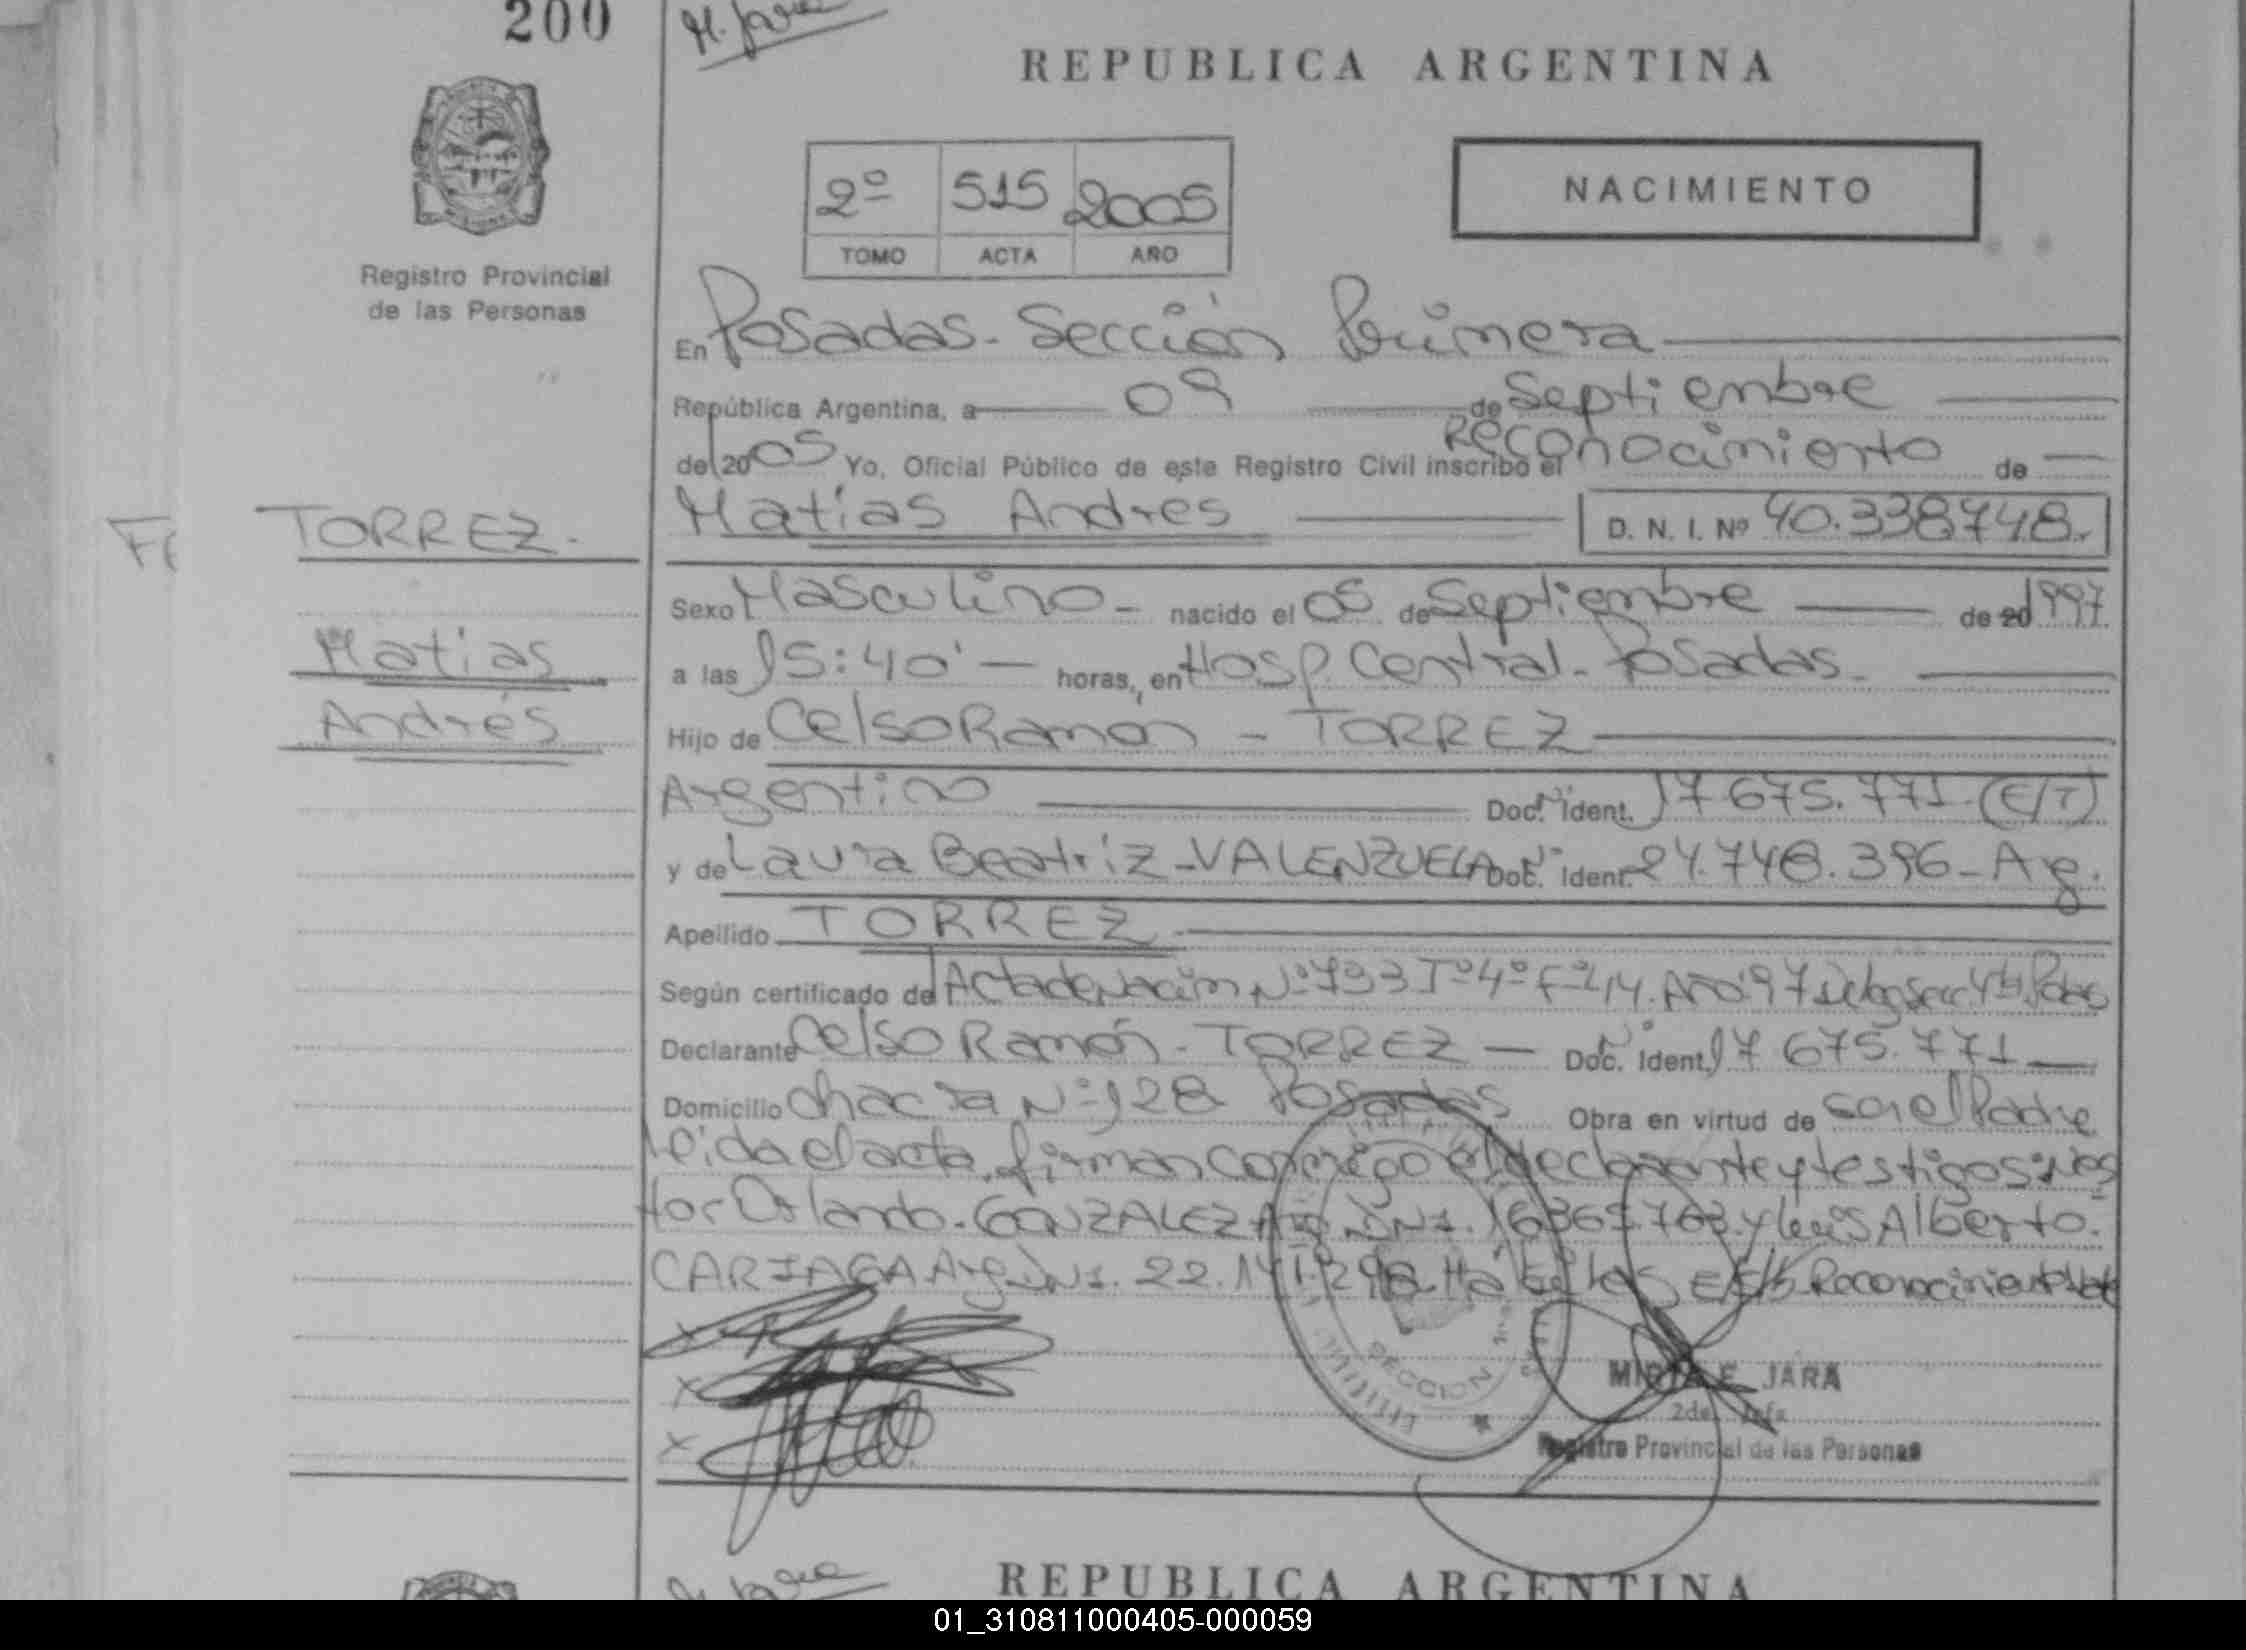 200
M. Jara
REPUBLICA ARGENTINA
2º 515 2005
TOMO ACTA AÑO
NACIMIENTO
Registro Provincial
de las Personas
En Posadas - Sección Primera
República Argentina, a 09 de Septiembre
de 2005 Yo, Oficial Público de este Registro Civil inscribo el Reconocimiento de
TORREZ.
Matías Andres D. N. I. Nº 40.338748.
Sexo Masculino - nacido el 05 de Septiembre de 20 1997.
Matías
a las 15:40' horas, en Hosp. Central - Posadas.
Andrés
Hijo de Celso Ramon - TORREZ
Argentino Doc. Ident. 17 675.771. (E/T)
y de Laura Beatriz - VALENZUELA Doc. Ident. 24.748.396 - Arg.
Apellido TORREZ
Según certificado de Acta de Nación Nº 733 Tº 4º Fº 114. Año 97 Deleg Secc 4ta
Declarante Celso Ramón - TORREZ - Doc. Ident. 17 675.771
Domicilio Chacra Nº 128 Posadas Obra en virtud de ser el Padre
leida el acta, firman conmigo el declarante y testigos: Nes
tor Orlando - GONZALEZ Arg. DNI. y Luis Alberto.
CARIAGA Arg DNI. 22.141.298 Hábiles Reconocimiento
MIRTA E. JARA
2da. Jefa
Registro Provincial de las Personas
SECCION
REPUBLICA ARGENTINA
01_310811000405-000059